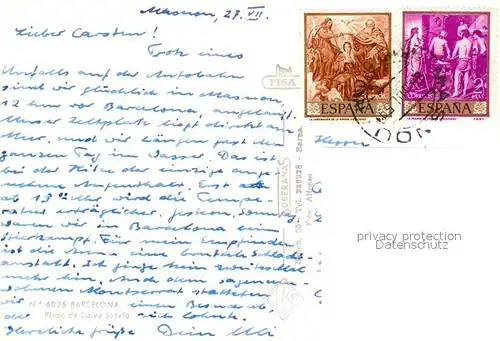 Masnou, 27. VII.
Lieber Carsten!
Trotz eines
Unfalls auf der Autobahn
sind wir glücklich in Masnou,
12 km vor Barcelona angelangt.
Unser Zeltplatz liegt direkt am
Meer, und wir hängen fast den
ganzen Tag im Wasser. Das ist
bei der Hitze der einzige ange-
nehme Aufenthalt. Erst
ab 19 Uhr wird die Tempe-
ratur erträglicher. Gestern, Sonntag,
waren wir in Barcelona beim
Stierkampf. Für mein Empfinden
ist die Arena eine Schlacht-
anstalt. Ich ginge kein zweites Mal
mehr hin. Auch dem sagenum-
wobenen Montserrat statteten
wir einen Besuch ab,
der sich lohnte.
Herzliche Grüße Dein Uli
Herrn
FISA
ESPAÑA
2
PTAS
ESPAÑA
SOBERANA
Barna.
N.º 6025 BARCELONA
Plaza de Calvo Sotelo
privacy protection
Datenschutz